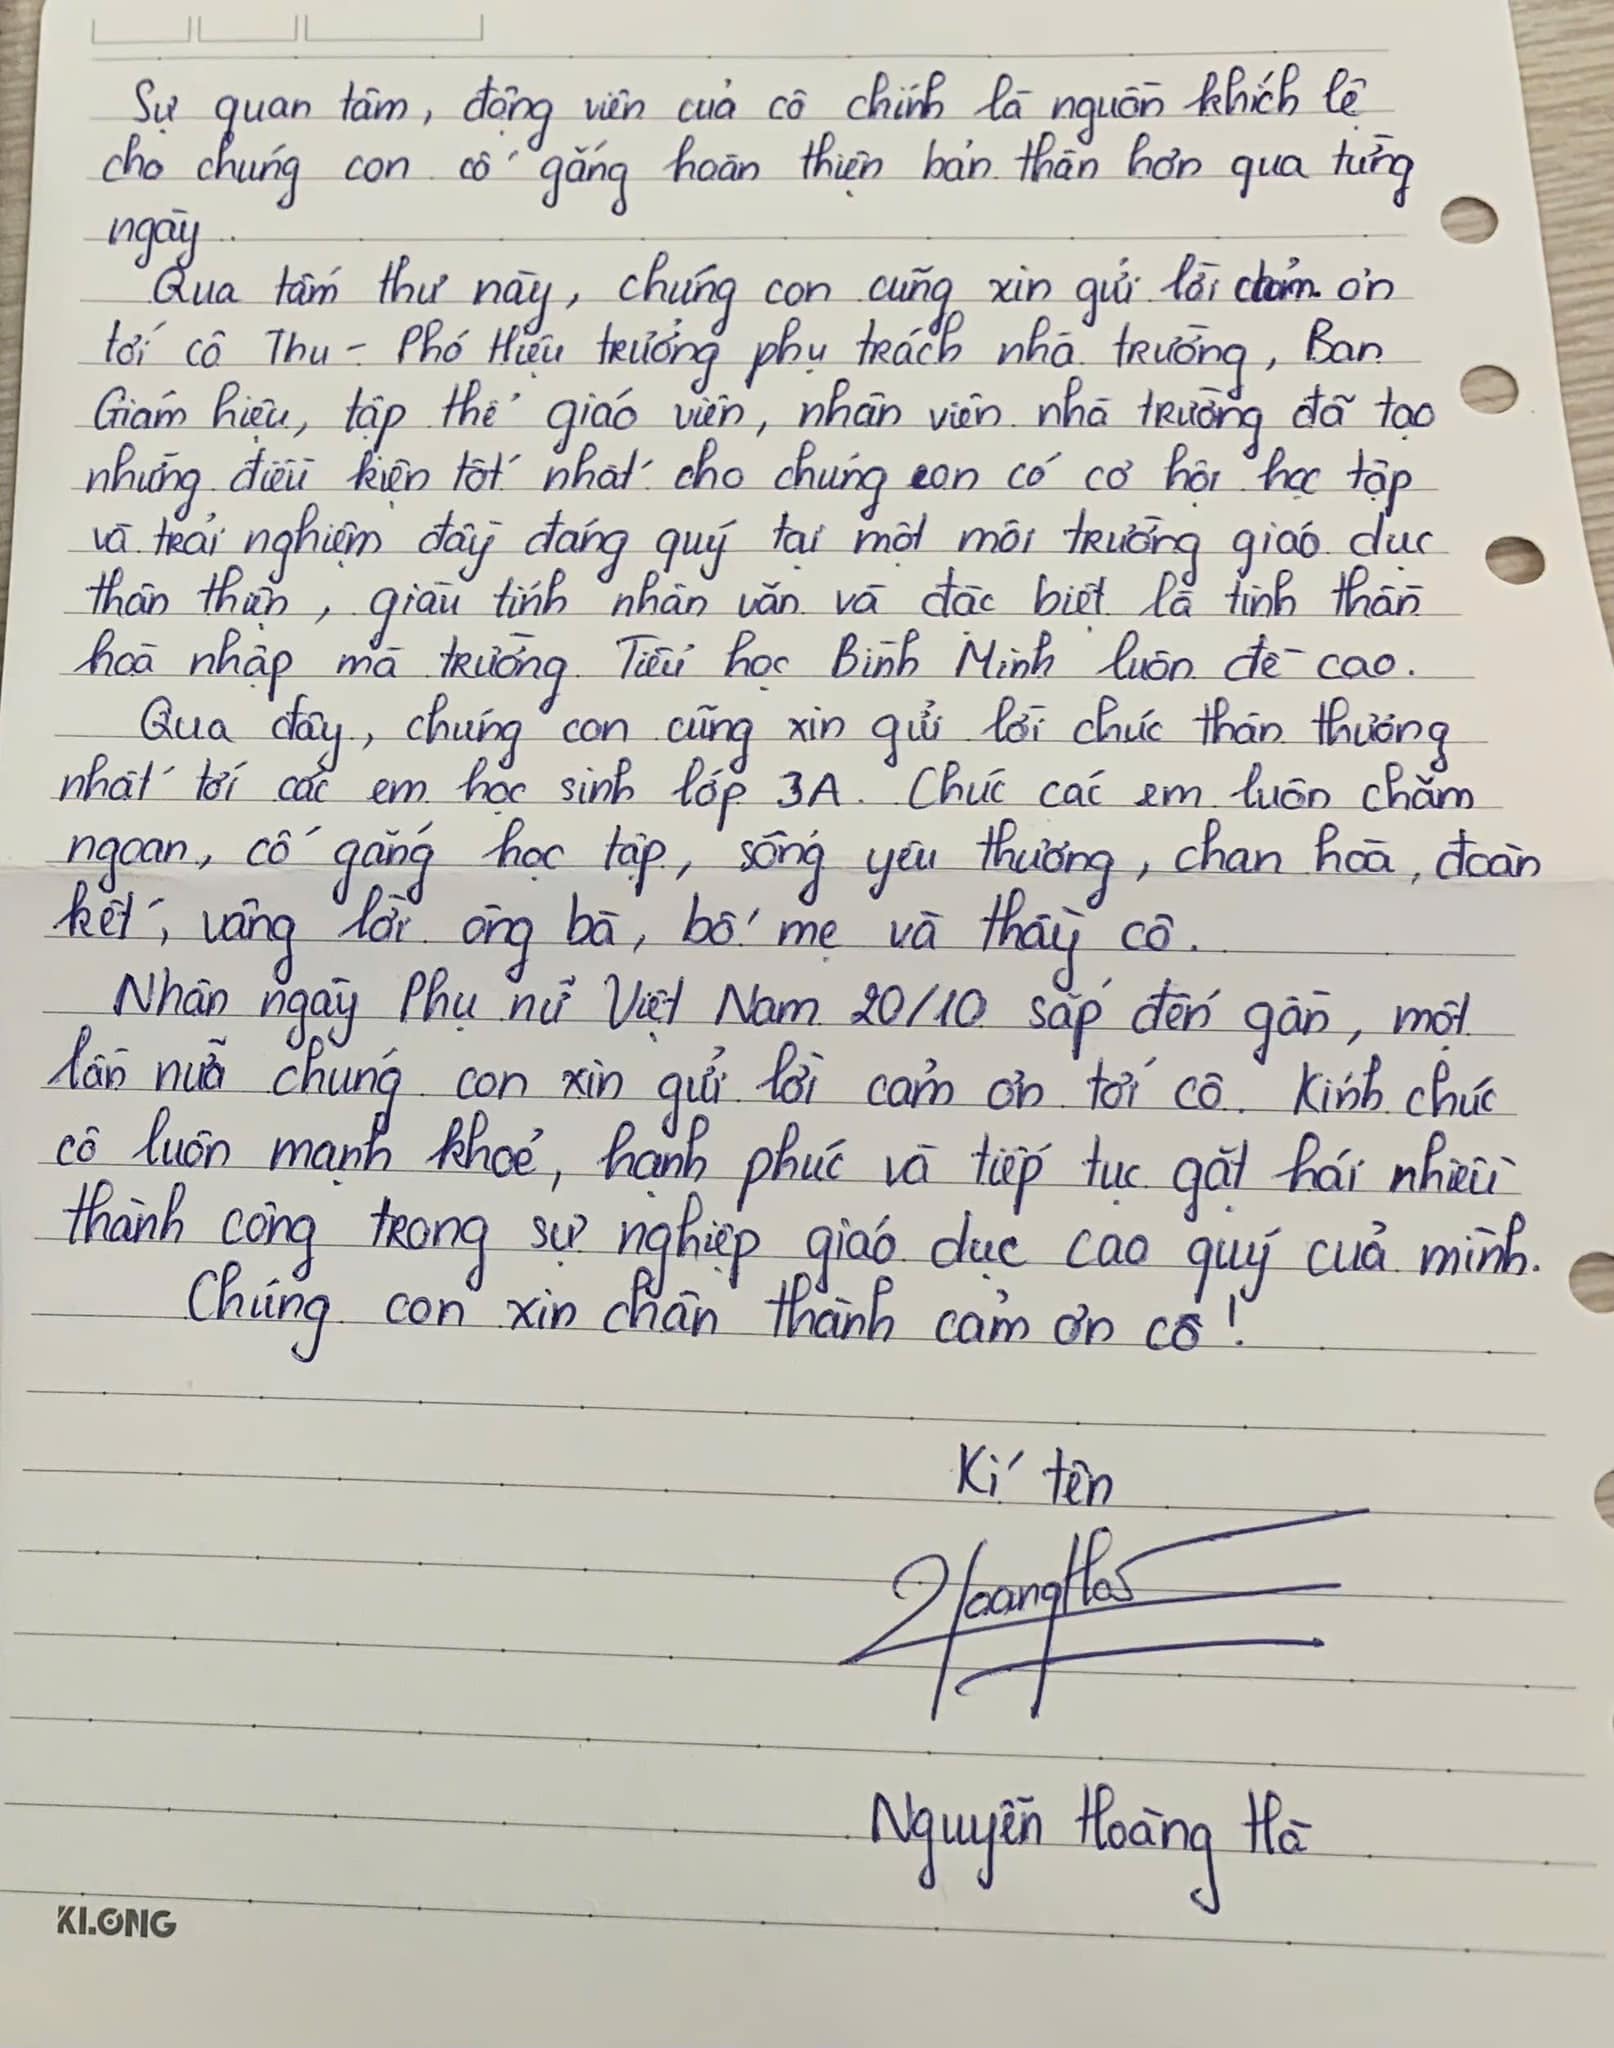 Sự quan tâm, động viên của cô chính là nguồn khích lệ
cho chúng con cố gắng hoàn thiện bản thân hơn qua từng
ngày.
Qua tấm thư này, chúng con cũng xin gửi lời cảm ơn
tới cô Thu - Phó Hiệu trưởng phụ trách nhà trường, Ban
Giám hiệu, tập thể giáo viên, nhân viên nhà trường đã tạo
những điều kiện tốt nhất cho chúng con có cơ hội học tập
và trải nghiệm đầy đáng quý tại một môi trường giáo dục
thân thiện, giàu tính nhân văn và đặc biệt là tinh thần
hoà nhập mà trường Tiểu học Bình Minh luôn đề cao.
Qua đây, chúng con cũng xin gửi lời chúc thân thương
nhất tới các em học sinh lớp 3A. Chúc các em luôn chăm
ngoan, cố gắng học tập, sống yêu thương, chan hoà, đoàn
kết, vâng lời ông bà, bố mẹ và thầy cô.
Nhân ngày Phụ nữ Việt Nam 20/10 sắp đến gần, một
lần nữa chúng con xin gửi lời cảm ơn tới cô. Kính chúc
cô luôn mạnh khoẻ, hạnh phúc và tiếp tục gặt hái nhiều
thành công trong sự nghiệp giáo dục cao quý của mình.
Chúng con xin chân thành cảm ơn cô!
Kí tên
HoangHa
Nguyễn Hoàng Hà
KLONG